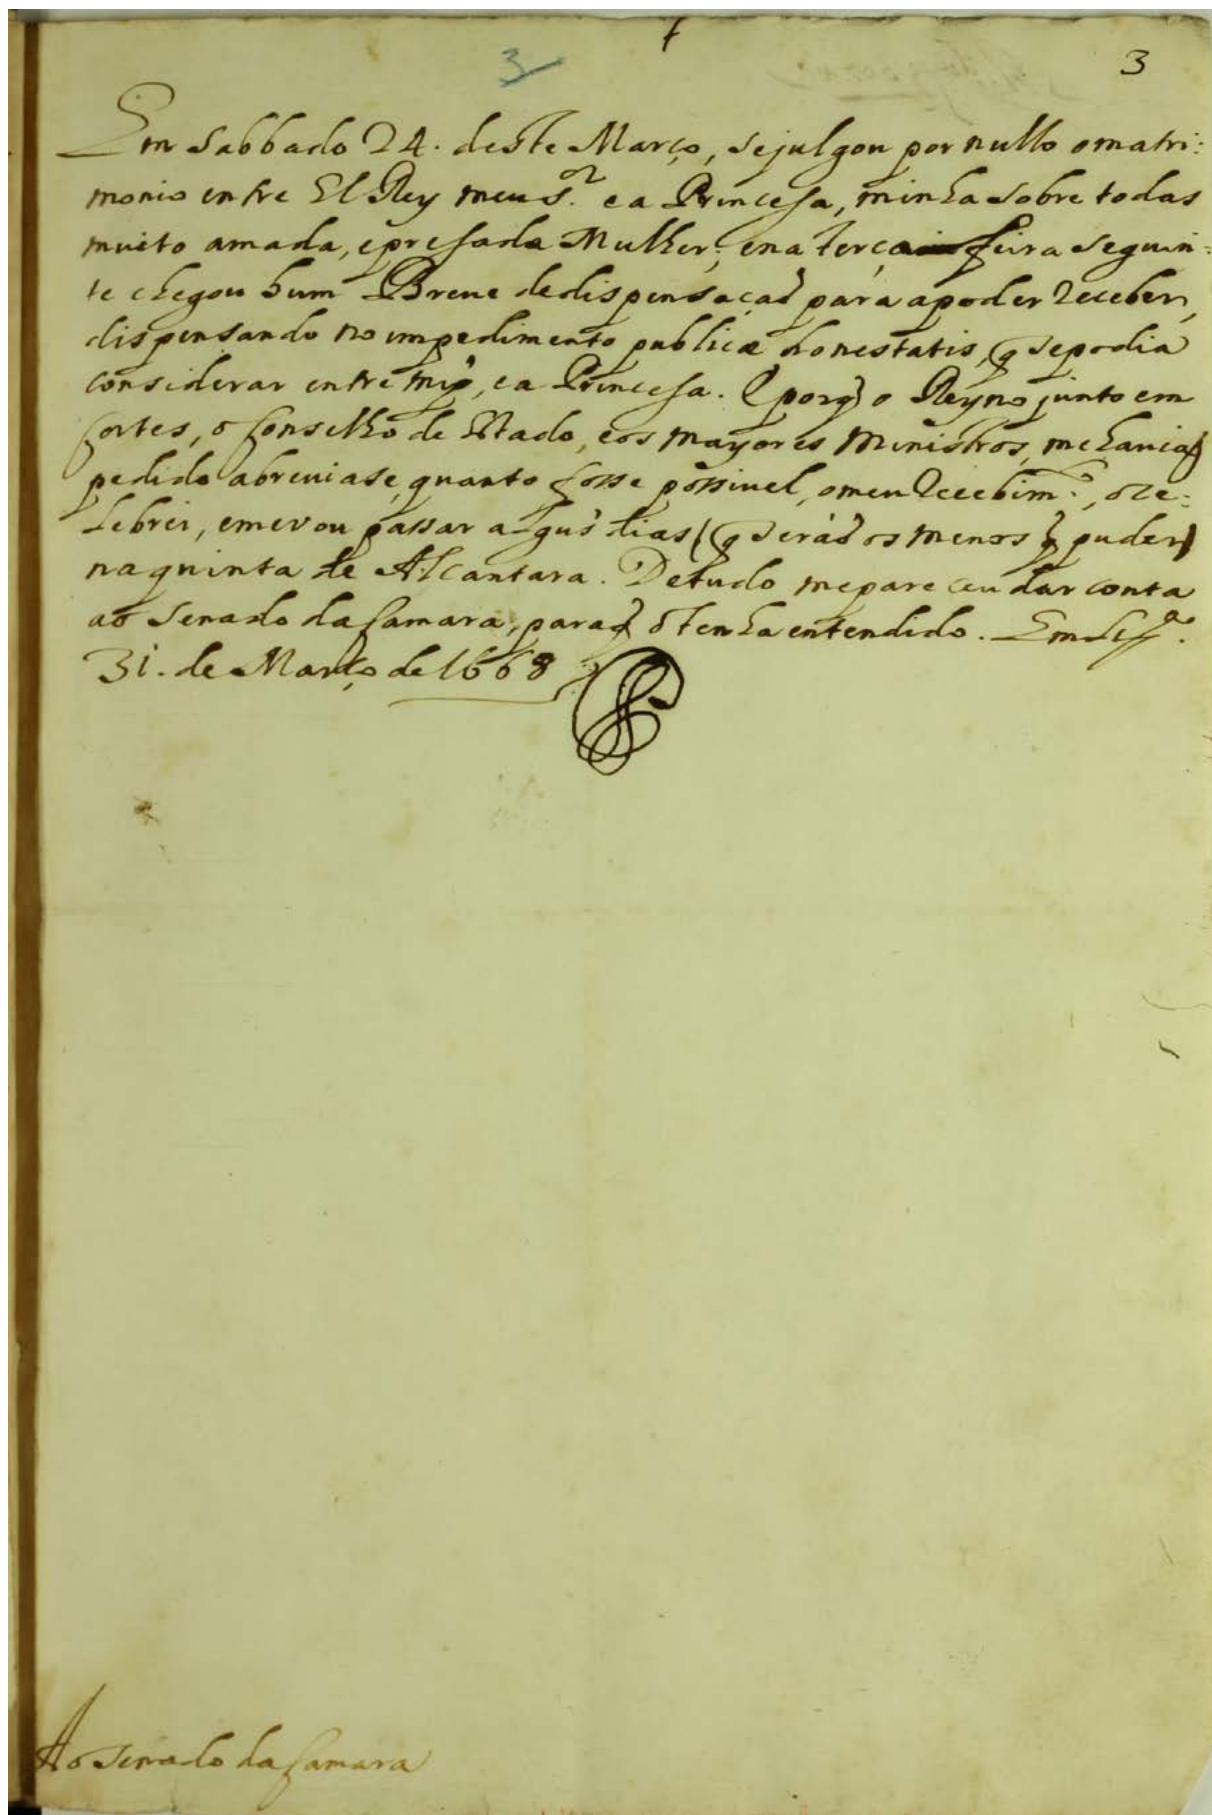 3 3
Em Sabbado 24. deste Março, se julgou por nullo o matri:
monio entre El Rey meu S.ᵒʳ e a Princesa, minha sobre todas
muito amada, e presada Mulher; e na terça feira seguin:
te chegou hum Breue de dispensação para a poder receber,
dispensando no impedimento publicæ honestatis, q̃ se podia
considerar entre my, e a Princesa. E porq̃ o Reyno junto em
Cortes, o Conselho de Estado, e os mayores Ministros, me hauiaõ
pedido abreuiase, quanto fosse possiuel, o meu recebim.ᵗᵒ, o ce:
lebrei, e me vou passar algus dias (q̃ seraõ os menos q̃ puder)
na quinta de Alcantara. De tudo me pareceu dar conta
ao Senado da Camara, para q̃ o tenha entendido. Em Lix.ᵃ
31. de Março de 1668
Ao Senado da Camara